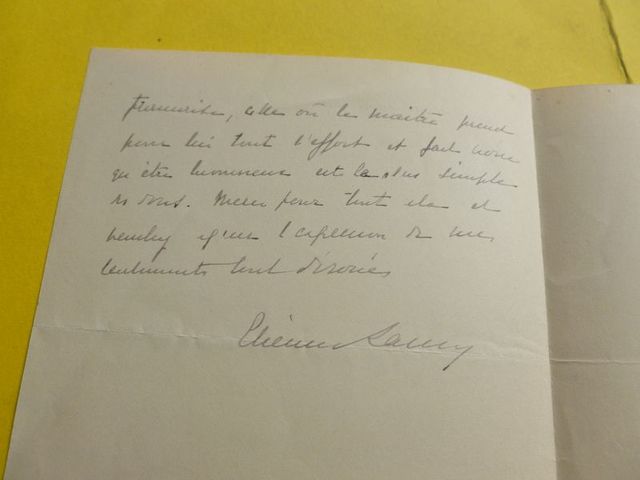 première, celle où le maître prend
pour lui tout l'effort et fait croire
qu'être lumineux est le plus simple
des dons. Merci pour tout cela et
veuillez agréer l'expression de mes
sentiments tout dévoués
Etienne Lamy